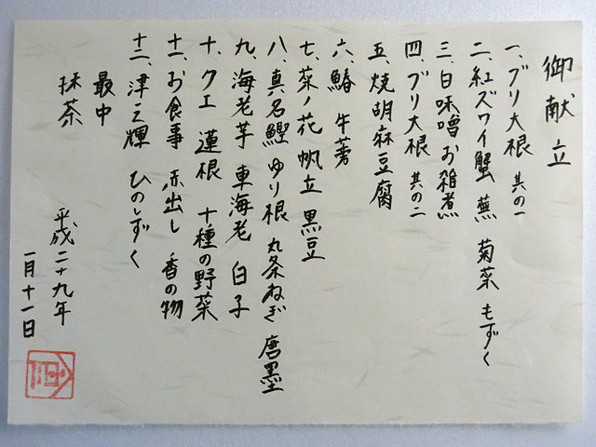 御献立
一、ブリ大根 其の一
二、紅ズワイ蟹 蕪 菊菜 もずく
三、白味噌お雑煮
四、ブリ大根 其の二
五、焼胡麻豆腐
六、鰆 牛蒡
七、菜ノ花 帆立 黒豆
八、真名鰹 ゆり根 九条ねぎ 唐墨
九、海老芋 車海老 白子
十、クエ 蓮根 十種の野菜
十一、お食事 赤出し 香の物
十二、津之輝 ひのしずく
最中
抹茶
平成二十九年
一月十一日